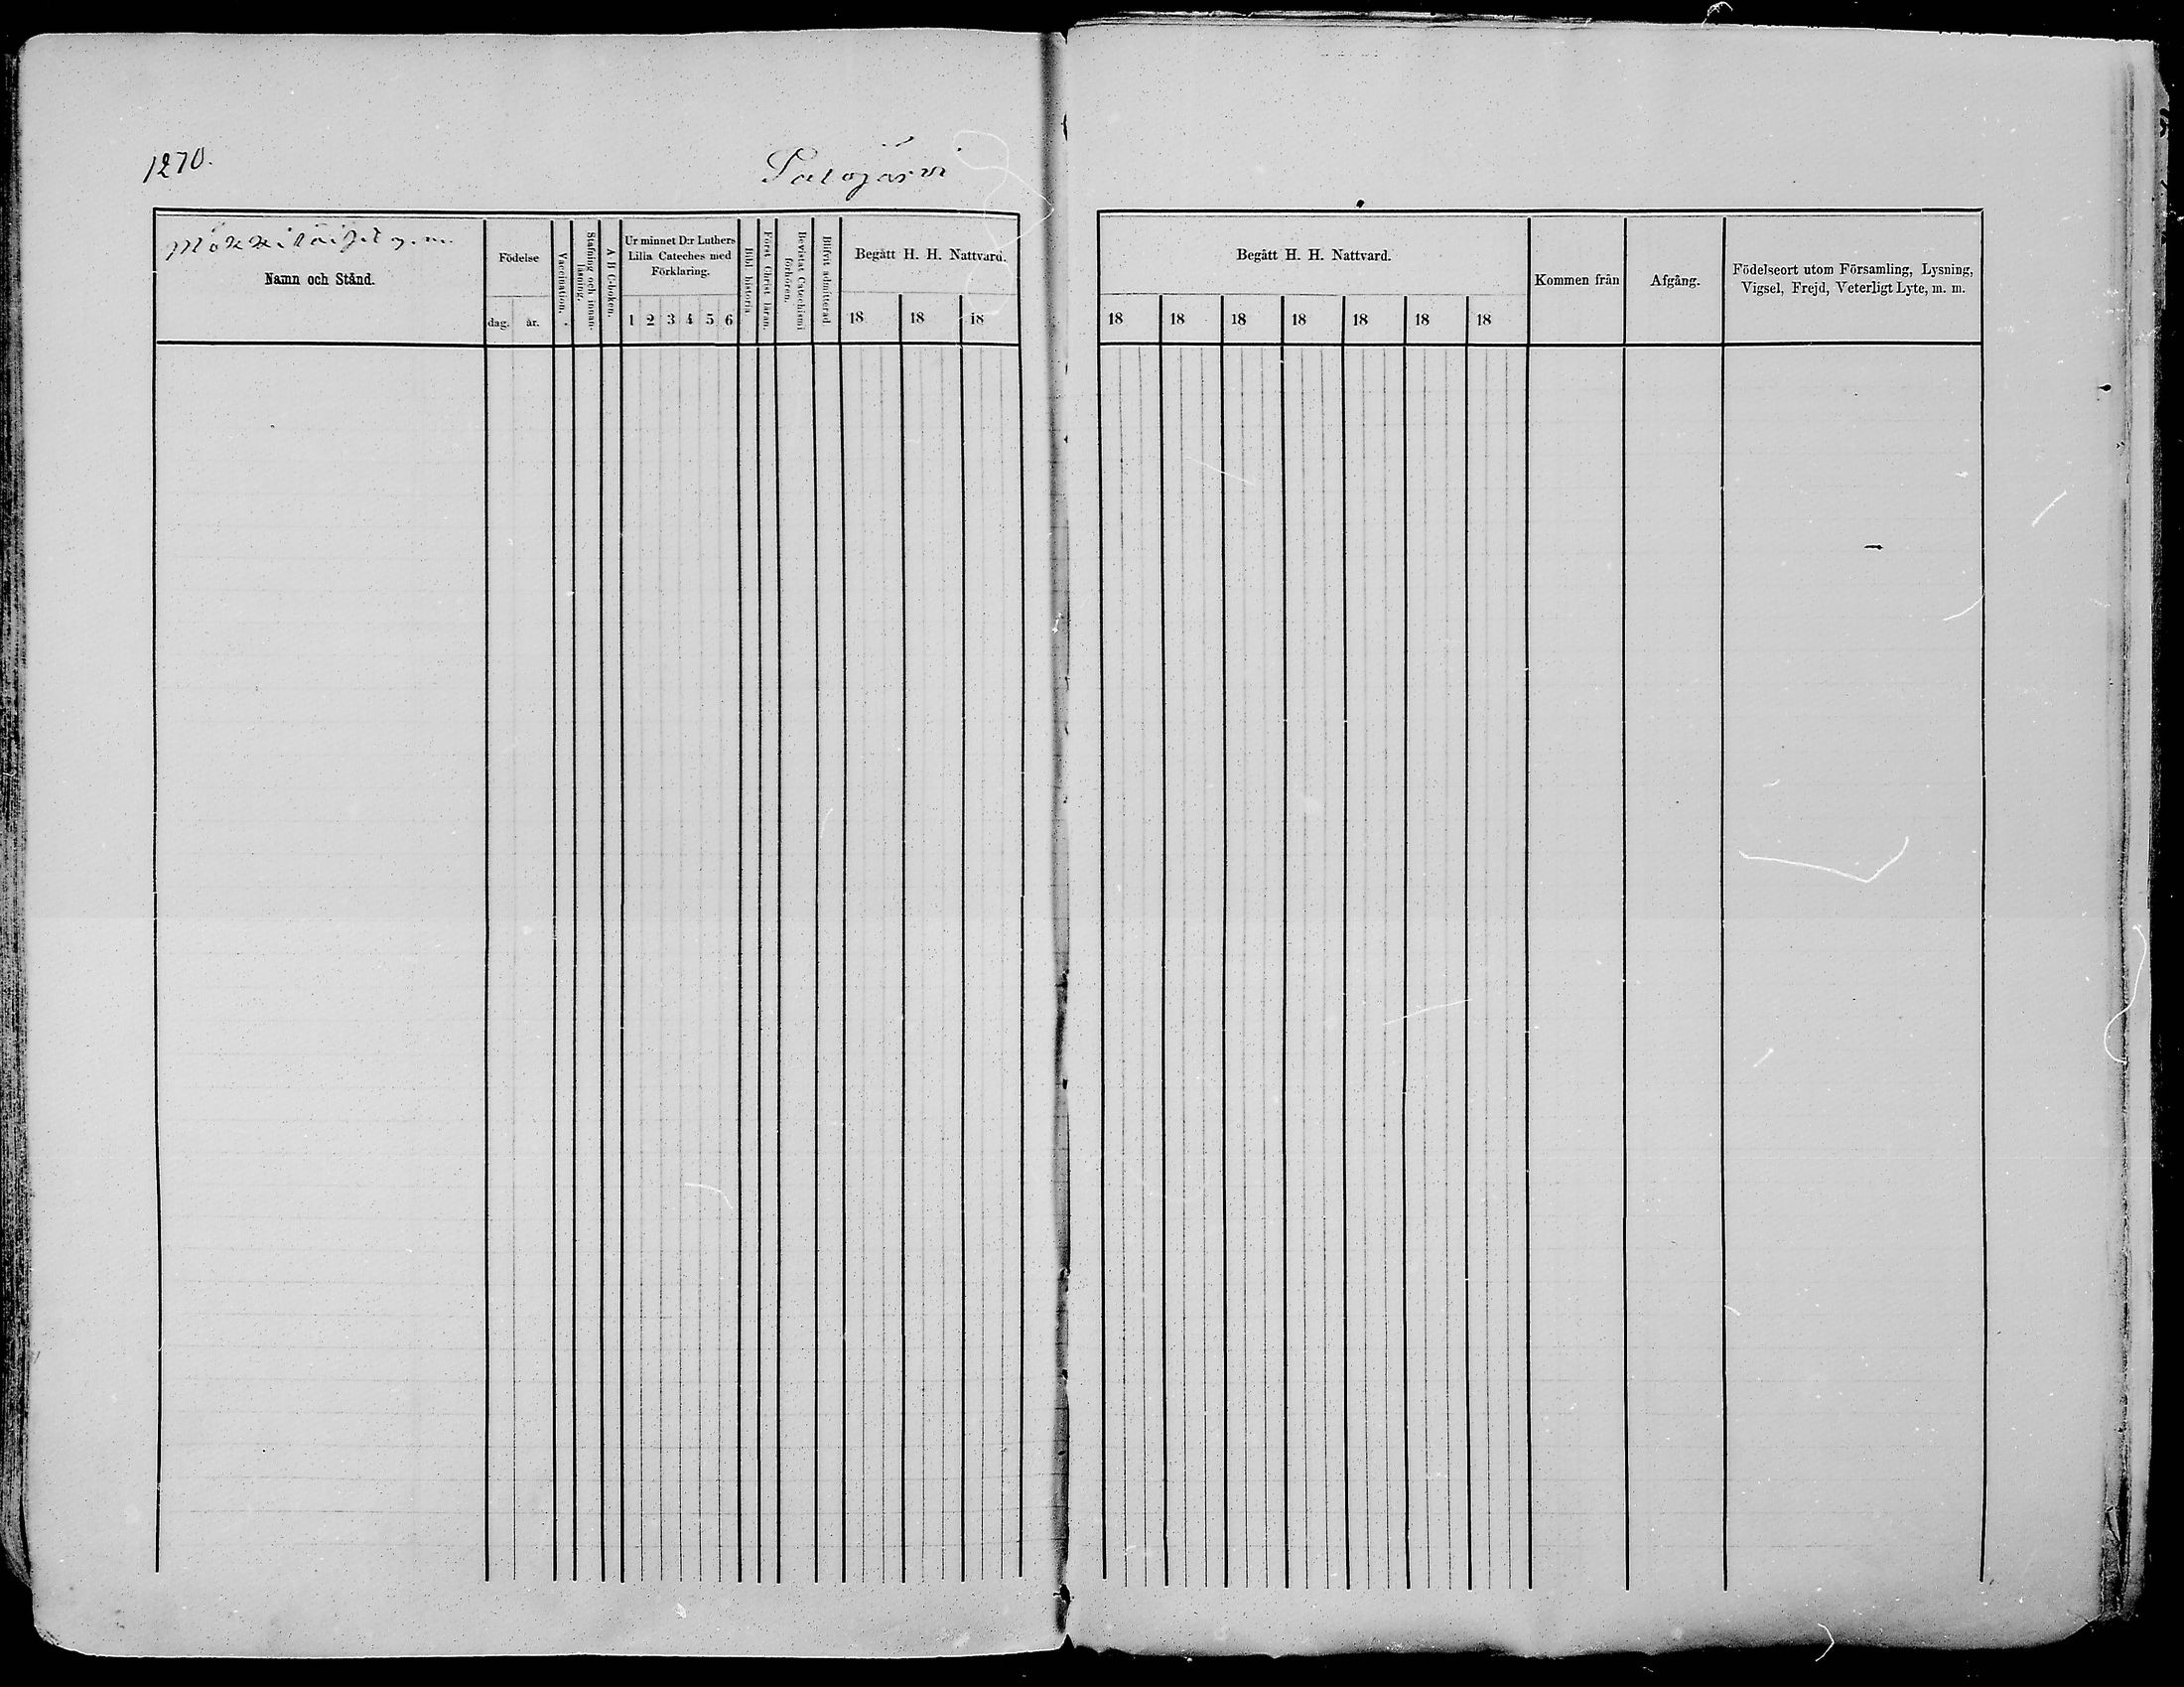 1270.
Salojärvi
Mökkiläiset y.m.
Namn och Stånd.
Födelse
dag. år.
Vaccination.
Stafning och innan-läsning.
A B C-boken.
Ur minnet D:r Luthers
Lilla Cateches med
Förklaring.
1 2 3 4 5 6
Bibl. historia
Först. Christ. läran.
Bevistat Catechismi förhören.
Blifvit admitterad
Begått H. H. Nattvard.
18 18 18
Begått H. H. Nattvard.
18 18 18 18 18 18 18
Kommen från
Afgång.
Födelseort utom Församling, Lysning,
Vigsel, Frejd, Veterligt Lyte, m. m.